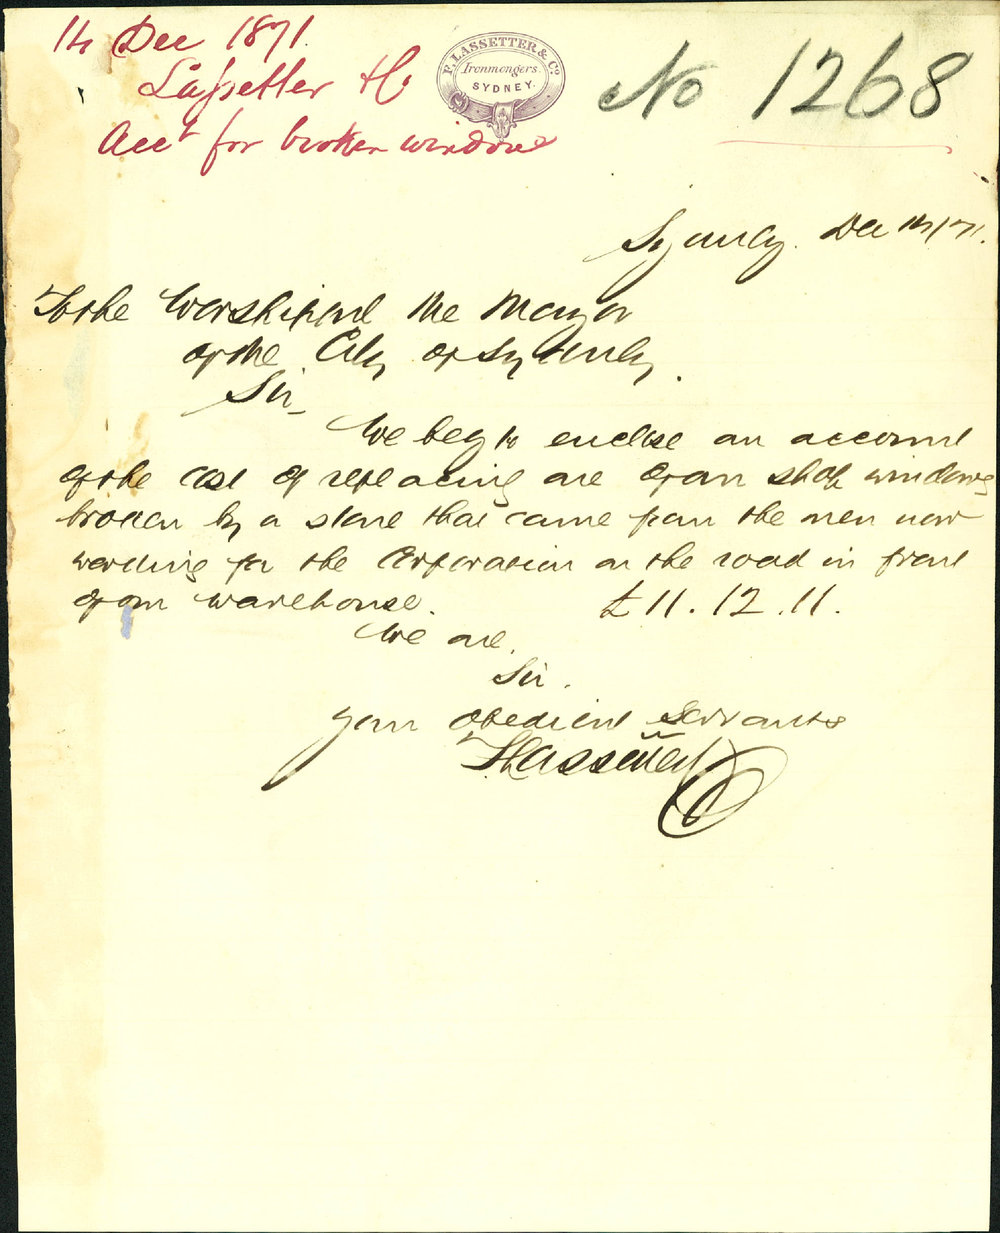 14 Dec 1871.
Lassetter & Co
Acct for broken window
F. LASSETTER & Co.
Ironmongers.
SYDNEY.
No 1268
Sydney. Dec 14/71.
To the Worshipful the Mayor
of the City of Sydney.
Sir,
We beg to enclose an account
of the cost of replacing one of our shop windows
broken by a stone that came from the men now
working for the Corporation on the road in front
of our warehouse. £11.12.11.
We are,
Sir.
Your obedient servants
F Lassetter